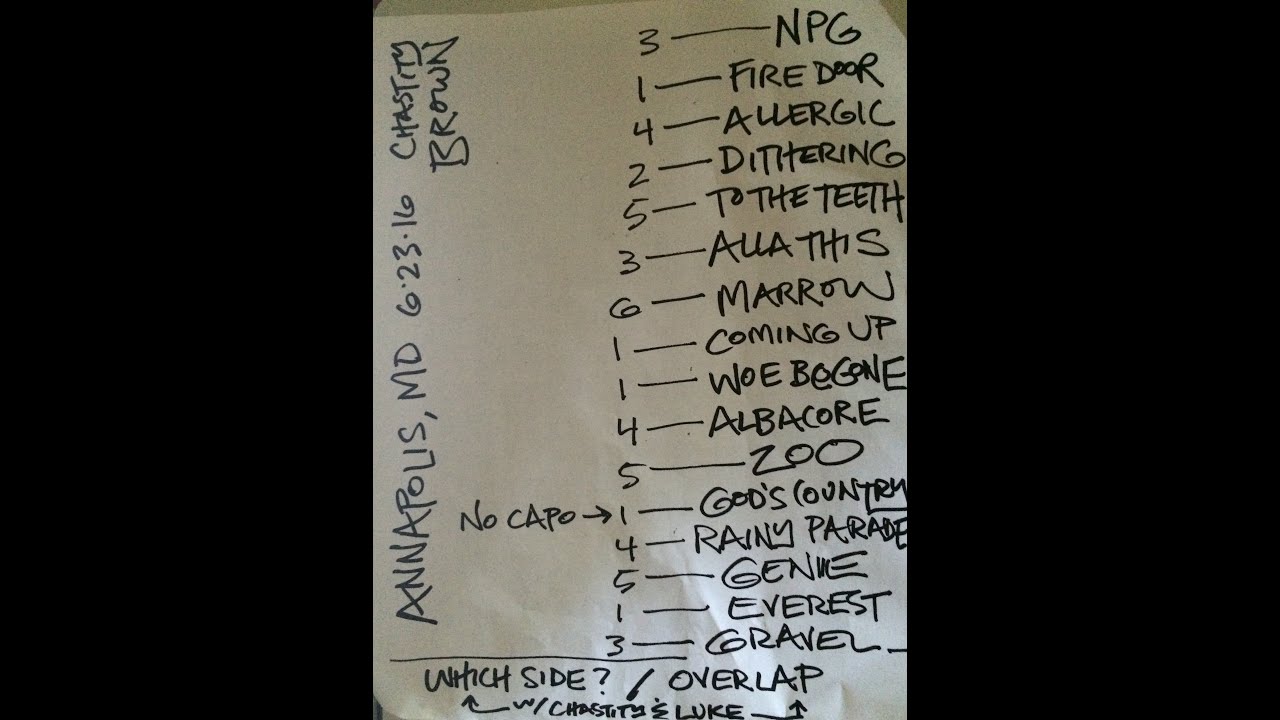 ANNAPOLIS, MD 6.23.16 CHASTITY
BROWN
3 — NPG
1 — FIRE DOOR
4 — ALLERGIC
2 — DITHERING
5 — TO THE TEETH
3 — ALLA THIS
6 — MARROW
1 — COMING UP
1 — WOE BEGONE
4 — ALBACORE
5 — ZOO
NO CAPO → 1 — GOD'S COUNTRY
4 — RAINY PARADE
5 — GENIE
1 — EVEREST
3 — GRAVEL
WHICH SIDE? / OVERLAP
W/ CHASTITY & LUKE